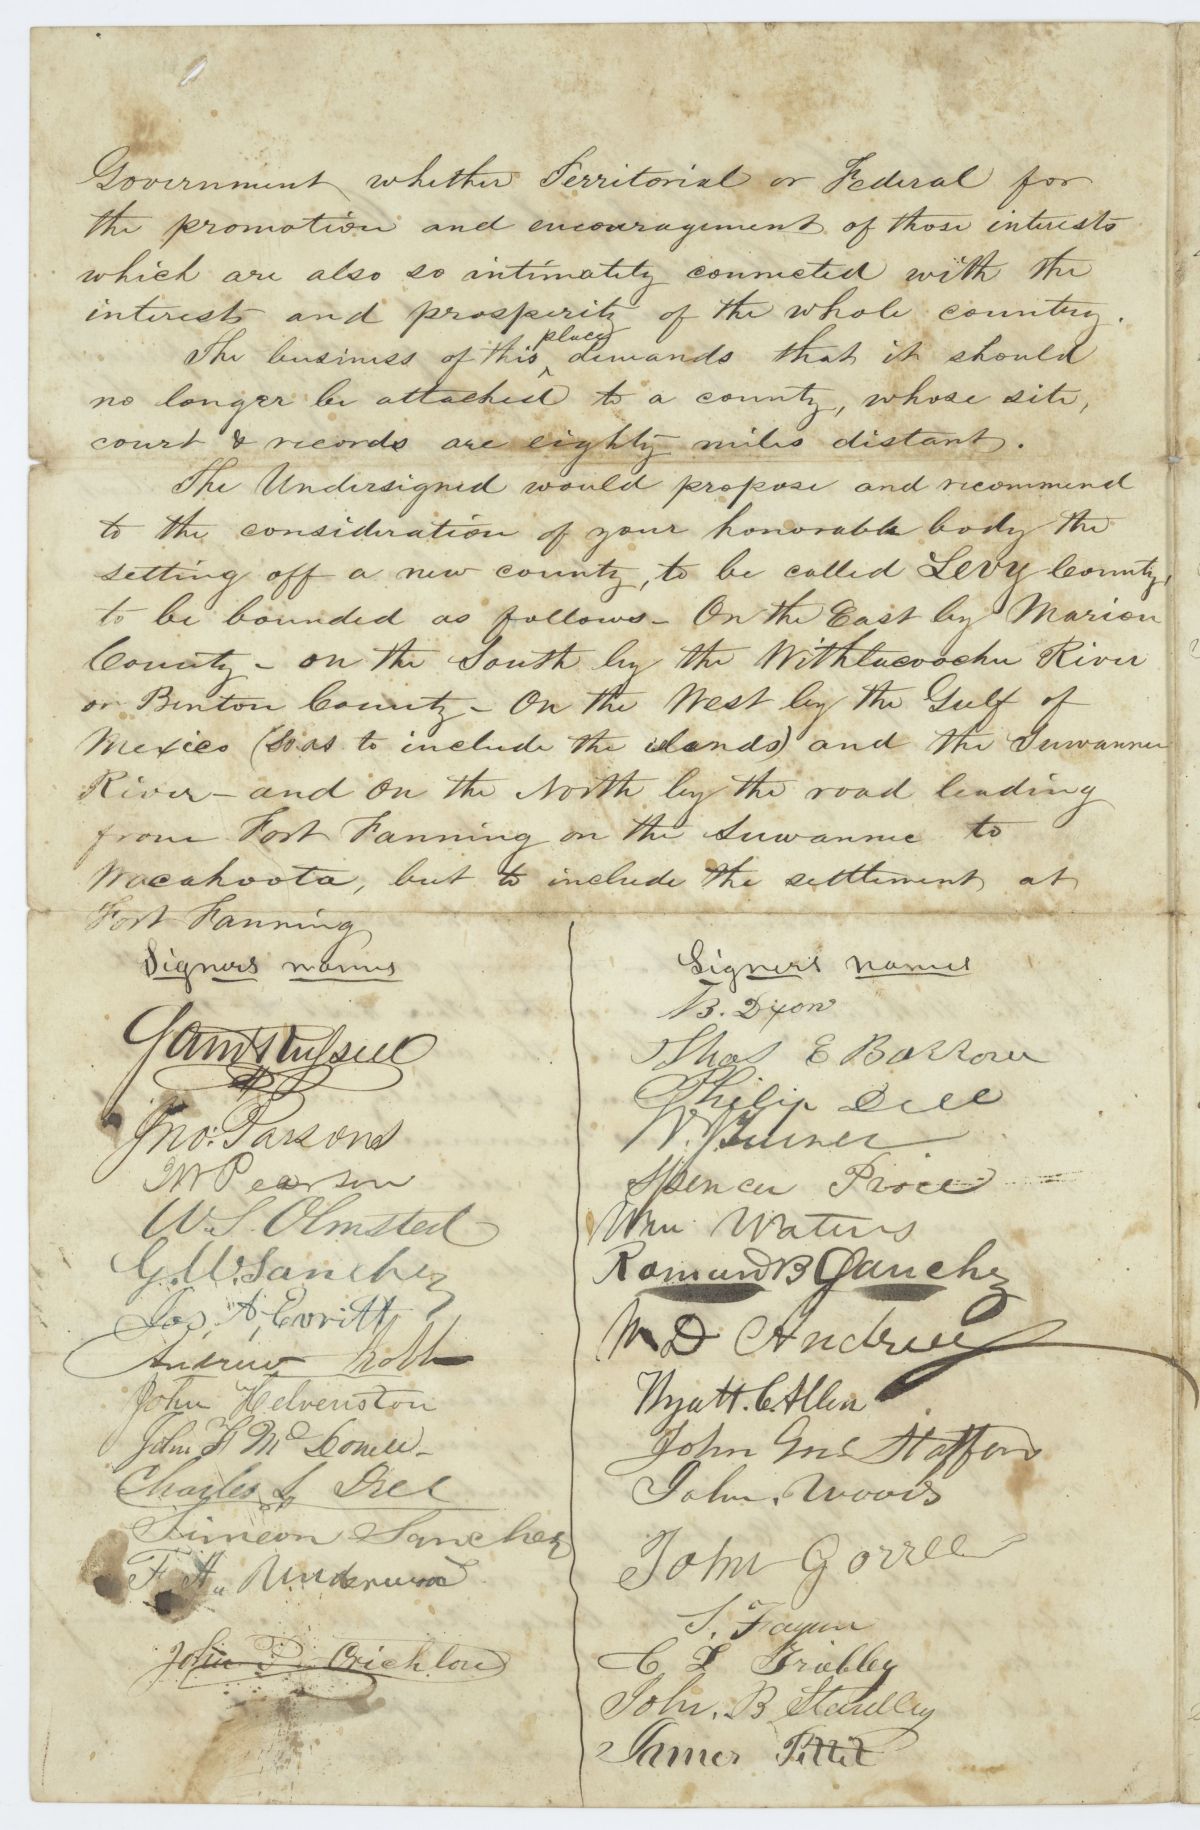 Government whether Territorial or Federal for
the promotion and encouragement of those interests
which are also so intimately connected with the
interests and prosperity of the whole country.
The business of this place demands that it should
no longer be attached to a county, whose site,
court & records are eighty miles distant.
The Undersigned would propose and recommend
to the consideration of your honorable body the
setting off a new county, to be called Levy County,
to be bounded as follows - On the East by Marion
County - on the South by the Withlacoochee River
or Benton County - On the West by the Gulf of
Mexico (so as to include the islands) and the Suwannee
River - and on the North by the road leading
from Fort Fanning on the Suwannee to
Wacahoota, but to include the settlement at
Fort Fanning
Signers names
Saml Russell
Jno. Parsons
W Pearson
W. S. Olmsted
G. W. Sanchez
Jos. A. Evritt
Andrew
John Helvenston
John F McDonell
Charles L Dell
Simeon Sanchez
F. A. Underwood
John P. Crichlow
Signers names
B. Dixon
Thos E Barrow
Philip Dell
W. Turner
Spencer Price
Wm Waters
Romund B Sanchez
W D Andrew
Wyatt. C. Allen
John Stafford
John. Woods
John Gorrell
S. Fagun
C L Friebley
John. B Standley
James Pettit